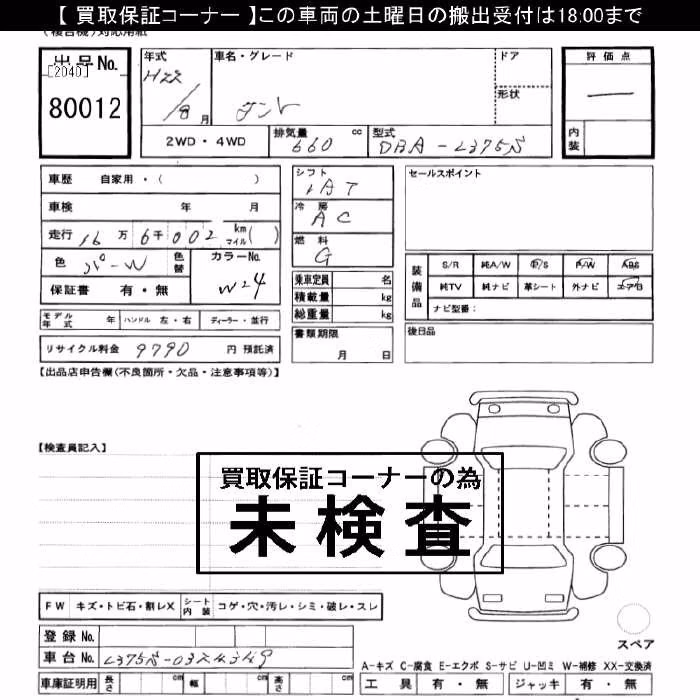 【 買取保証コーナー 】この車両の土曜日の搬出受付は18:00まで
対応用紙
出品No.
[2040]
80012
年式
H22
/8 月
車名・グレード
タント
ドア
形状
評価点
―
内装
2WD・4WD
排気量
660 cc
型式
DBA-L375S
車歴 自家用・( )
車検 年 月
走行 16 万 6 千 002 km マイル ( )
色 パーW 色替
カラーNo.
W24
保証書 有・無
シフト
IAT
冷房
AC
燃料
G
乗車定員 名
積載量 kg
総重量 kg
セールスポイント
装備品
S/R 純A/W P/S P/W ABS
純TV 純ナビ 革シート 外ナビ エアB
ナビ型番：
モデル年式 年 ハンドル 左・右 ディーラー・並行
リサイクル料金 9790 円 預託済
書類期限
月 日
後日品
【出品店申告欄(不良箇所・欠品・注意事項等)】
【検査員記入】
買取保証コーナーの為
未検査
FW キズ・トビ石・割レX シート内装 コゲ・穴・汚レ・シミ・破レ・スレ
登録 No.
車台 No.
車庫証明用 長さ cm 幅 cm 高さ cm
スペア
A-キズ C-腐食 E-エクボ S-サビ U-凹ミ W-補修 XX-交換済
工具 有・無 ジャッキ 有・無